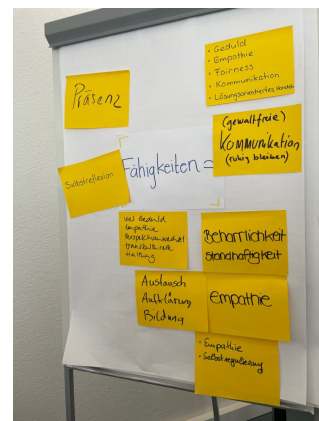 • Geduld
• Empathie
• Fairness
• Kommunikation
• Lösungsorientiertes Handeln
Präsenz
(gewaltfreie)
Kommunikation
(ruhig bleiben)
Selbstreflexion
Fähigkeiten =
viel Geduld
Empathie
Perspektivwechsel
transkulturelle
Haltung
Beharrlichkeit
standhaftigkeit
Austausch
Aufklärung
Bildung
Empathie
• Empathie
• Selbstregulierung